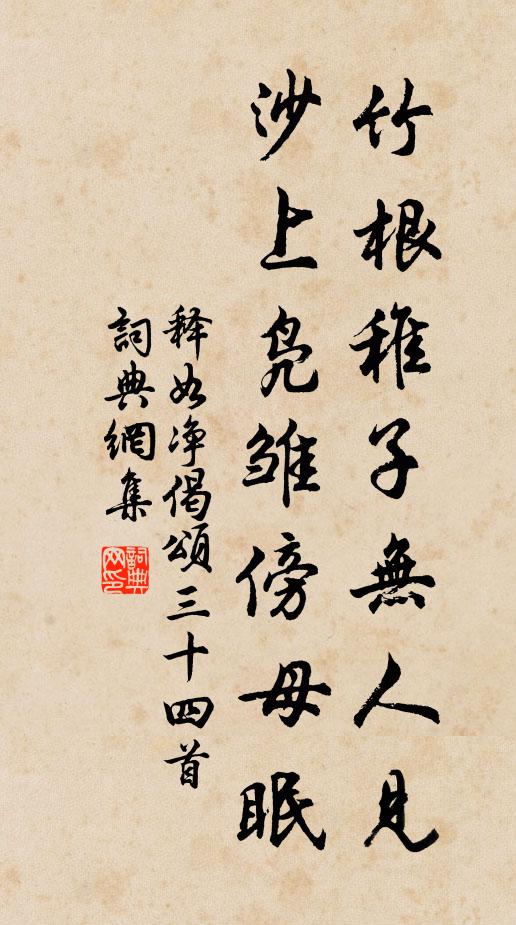 竹根稚子無人見
沙上鳧雛傍母眠
释如净偈頌三十四首
詞典網集
詞典网印